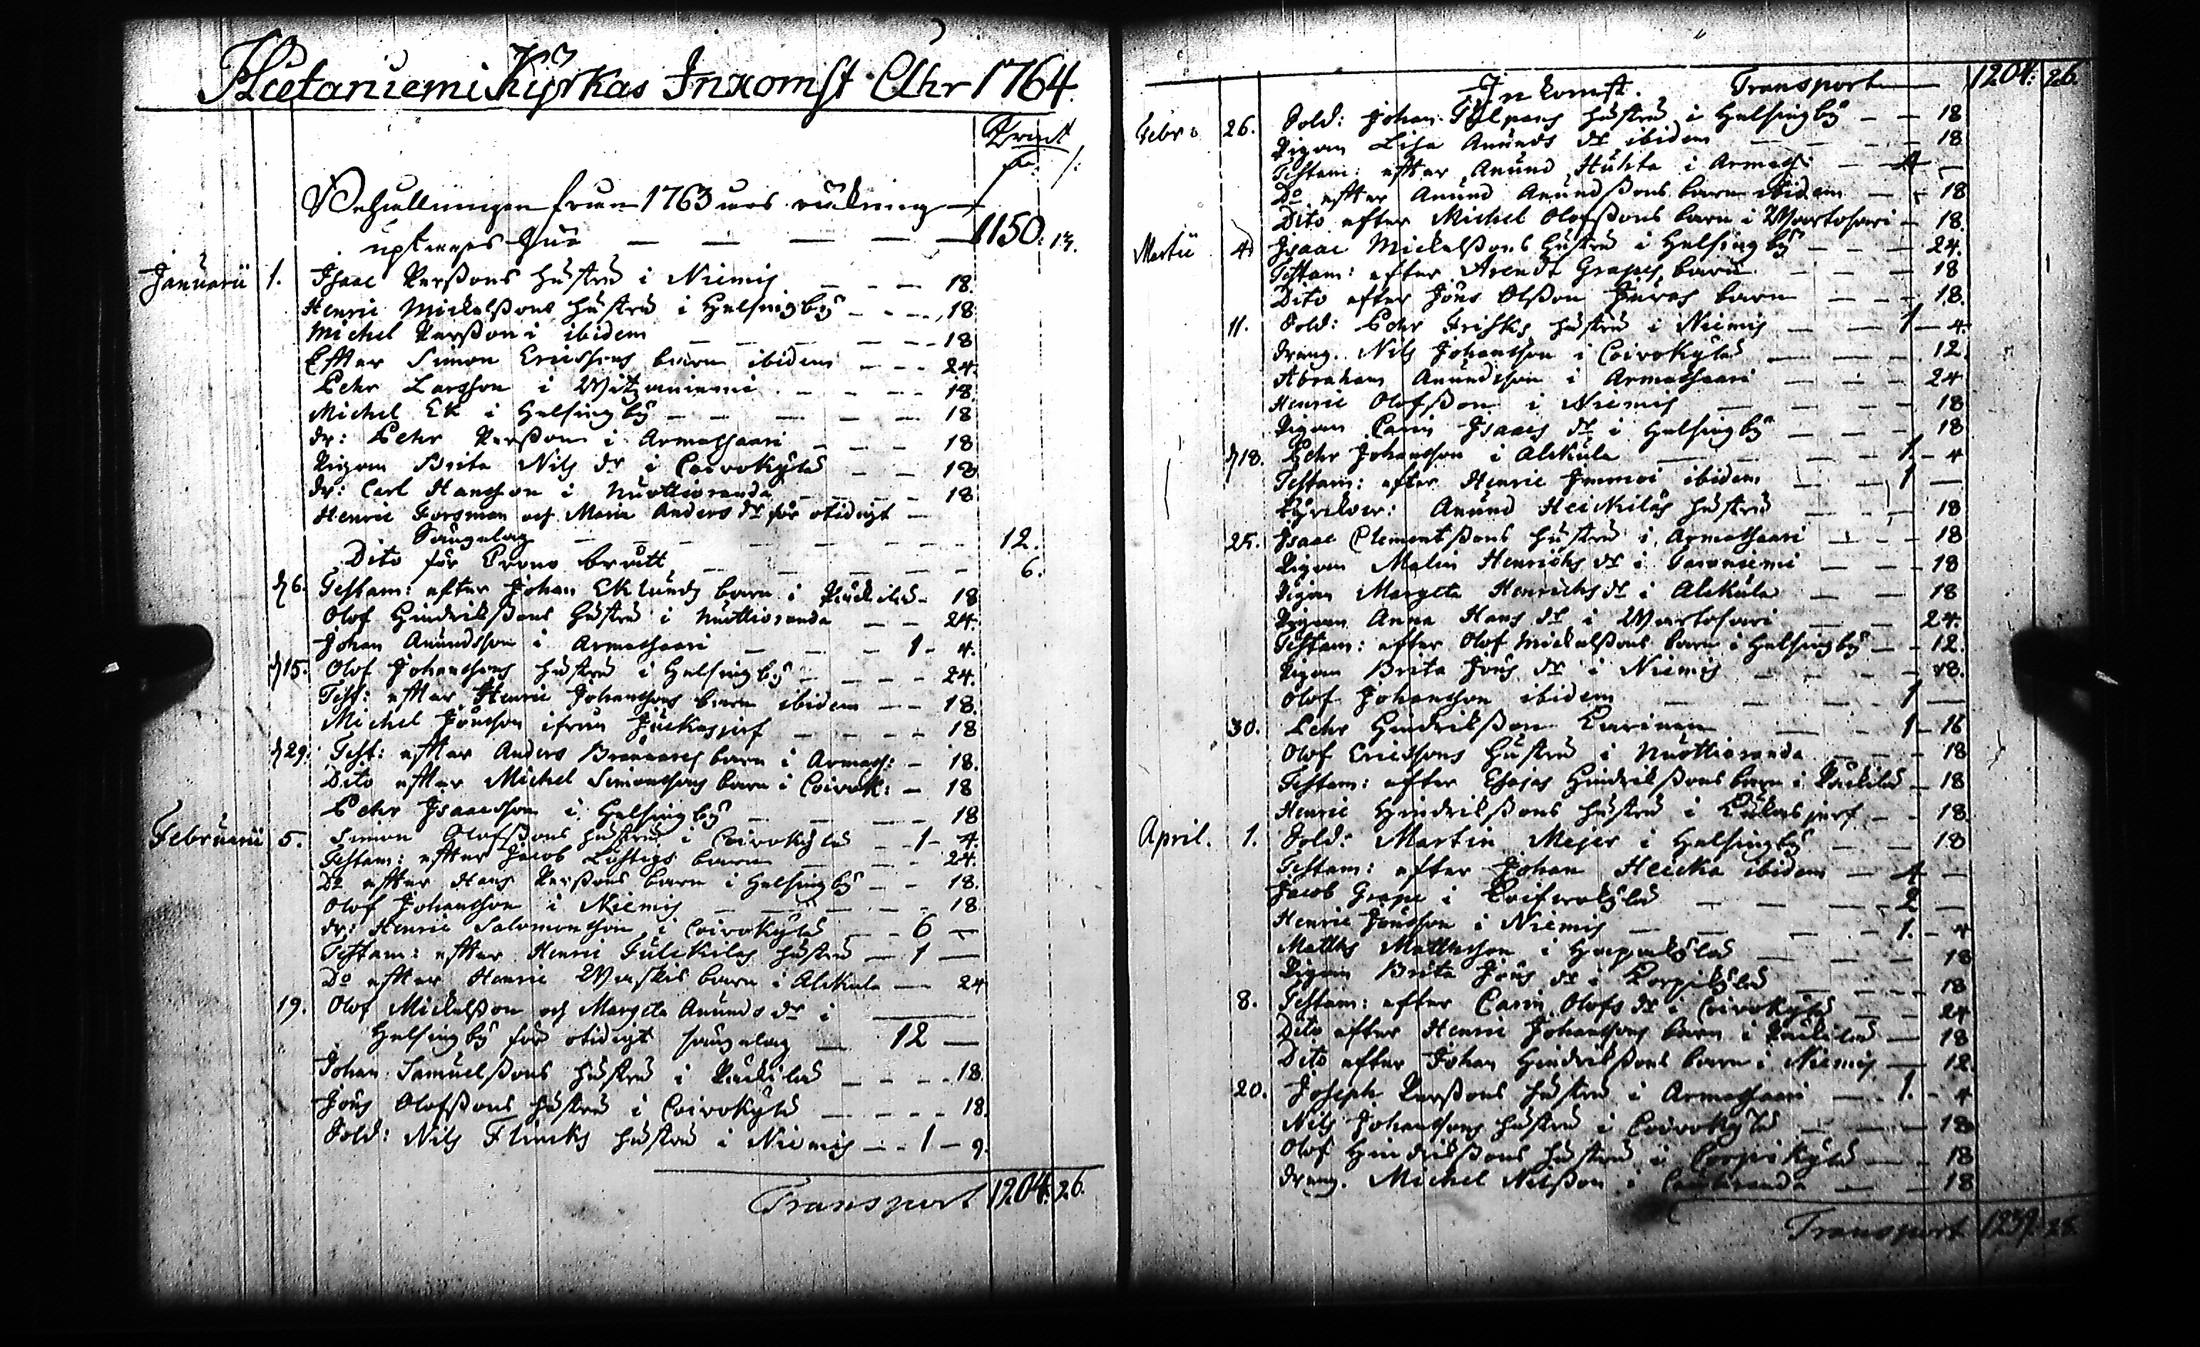 Hietaniemi Kyrkas Inkomst Åhr 1764.
Behållningen från 1763 års räkning
uptages här — — — — 1150. 13.
Januarii 1. Isaac Perssons hustru i Niemis — — — 18.
Henric Mickelssons hustru i Helsingby — — 18
Michel Persson i ibidem — — 18
Efter Simon Ericssons barn ibidem — — 24.
Pehr Larsson i Witzaniemi — — 18
Michel Ek i Helsingby — — 18
dr: Pehr Persson i Armassaari — — 18
Pigan Brita Nils dr i Coivokylä — — 18
dr: Carl Hansson i Nuottioranda — — 18
Henric Forsman och Maria Anders dr för otidigt —
Sängelag — — 12.
Dito för — — 6.
6. Testam: efter Johan Eklunds barn i — 18
Olof Hindrikssons hustru i Nuottioranda — — 24.
Johan Anundsson i Armassaari — — 1 - 4.
15. Olof Johanssons hustru i Helsingby — — 24.
Test: efter Henric Johanssons barn ibidem — — 18.
Michel Jönsson ifrån Juckasjerf — — 18
29. Test: efter Anders barn i Armass: — 18.
Dito efter Michel Simonssons barn i Coivok: — 18
Pehr Isaacsson i Helsingby — — 18
Februarii 5. Simon Olofssons hustru i Coivokylä — 1 - 4.
Testam: efter Jacob Lustigs barn — — 24.
Do efter Hans Perssons barn i Helsingby — — 18.
Olof Johansson i Niemis — — 18.
dr: Henric Salomonsson i Coivokylä — 6 —
Testam: efter Henric hustru — 1 —
Do efter Henric barn i Alckula — 24
19. Olof Mickelsson och Margeta Anunds dr i
Helsingby för otidigt sängelag — 12 —
Johan Samuelssons hustru i — — 18.
Jöns Olofssons hustru i Coivokylä — — 18.
Sold: Nils Flincks hustru i Niemis — — 1 — 9.
Transport 1204. 26.
Inkomst. Transport — 1204. 26.
Febr: 26. Sold: Johan hustru i Helsingby — — 18
Pigan Lisa Anunds dr ibidem — — 18
Testam: efter Anund Huhta i Armass: — 4 —
Do efter Anund Anundssons barn ibidem — — 18
Dito efter Michel Olofssons barn i Wartosari — 18.
Martii 4. Isaac Mickelssons hustru i Helsingby — — 24.
Testam: efter Arendt Grapes barn — — 18
Dito efter Jöns Olsson barn — — 18.
11. Sold: Pehr Frisks hustru i Niemis — — 1 - 4.
dräng. Nils Johansson i Coivokylä — — 12.
Abraham Anundsson i Armassaari — — 24
Henric Olofsson i Niemis — — 18
Pigan Carin Isaacs dr i Helsingby — — 18
18. Pehr Johansson i Alckula — — 1. - 4
Testam: efter Henric ibidem — — 1 —
Anund Heickiläs hustru — — 18
25. Isaac Clementssons hustru i Armassaari — — 18
Pigan Malin Henrichs dr i — — 18
Pigan Margeta Henrichs dr i Alckula — — 18
Pigan Anna Hans dr i Wartosari — — 24.
Testam: efter Olof Mickelssons barn i Helsingby — — 12.
Pigan Brita Jöns dr i Niemis — — 18.
Olof Johansson ibidem — — 1 —
30. Pehr Hindriksson — — 1 - 16
Olof Ericssons hustru i Nuottioranda — — 18
Testam: efter Esaias Hindrikssons barn i — 18
Henric Hindrikssons hustru i — — 18
April. 1. Sold: Martin Mejer i Helsingby — — 18
Testam: efter Johan Heicka ibidem — 4 —
Jacob Grape i — — 2 —
Henric Jönsson i Niemis — — 1. - 4
Matths Matthsson i — — 18
Pigan Brita Jöns dr i Korpikylä — — 18
8. Testam: efter Carin Olofs dr i Coivokylä — — 24
Dito efter Henric Johanssons barn i — 18
Dito efter Johan Hindrikssons barn i Niemis — 12.
20. Joseph Perssons hustru i Armassaari — — 1. - 4
Nils Johanssons hustru i Coivokylä — — 18
Olof Hindrikssons hustru i Corpikylä — — 18
dräng. Michel Nilsson i — — 18
Transport 1237. 28.